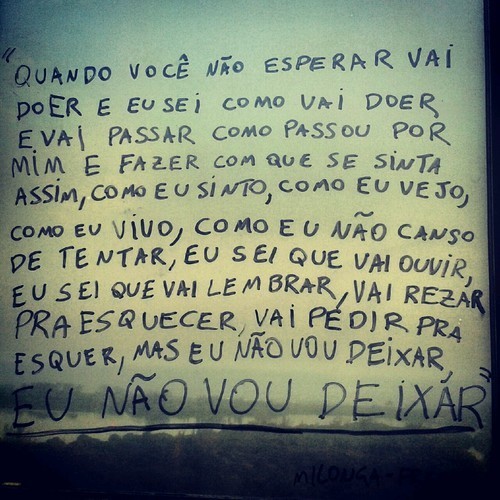 "QUANDO VOCÊ NÃO ESPERAR VAI
DOER E EU SEI COMO VAI DOER
E VAI PASSAR COMO PASSOU POR
MIM E FAZER COM QUE SE SINTA
ASSIM, COMO EU SINTO, COMO EU VEJO,
COMO EU VIVO, COMO EU NÃO CANSO
DE TENTAR, EU SEI QUE VAI OUVIR,
EU SEI QUE VAI LEMBRAR, VAI REZAR
PRA ESQUECER, VAI PEDIR PRA
ESQUER, MAS EU NÃO VOU DEIXAR,
EU NÃO VOU DEIXAR"
MILONGA-